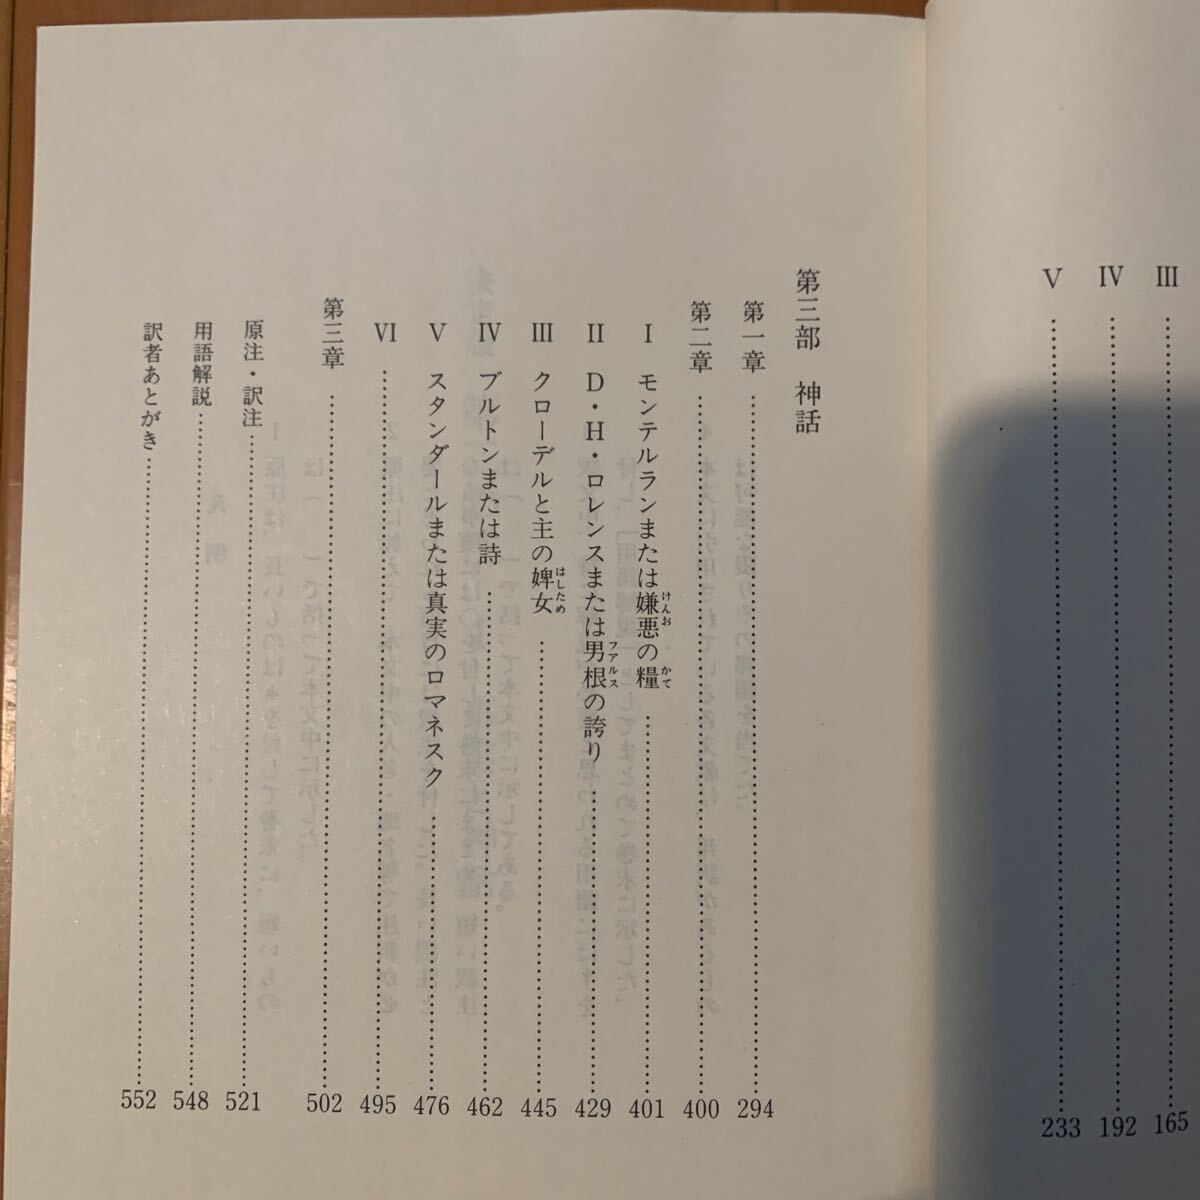 III 165
IV 192
V 233
第三部 神話
第一章 294
第二章 400
I モンテルランまたは嫌悪の糧 401
けんお かて
II D・H・ロレンスまたは男根の誇り 429
ファルス
III クローデルと主の婢女 445
はしため
IV ブルトンまたは詩 462
V スタンダールまたは真実のロマネスク 476
VI 495
第三章 502
原注・訳注 521
用語解説 548
訳者あとがき 552